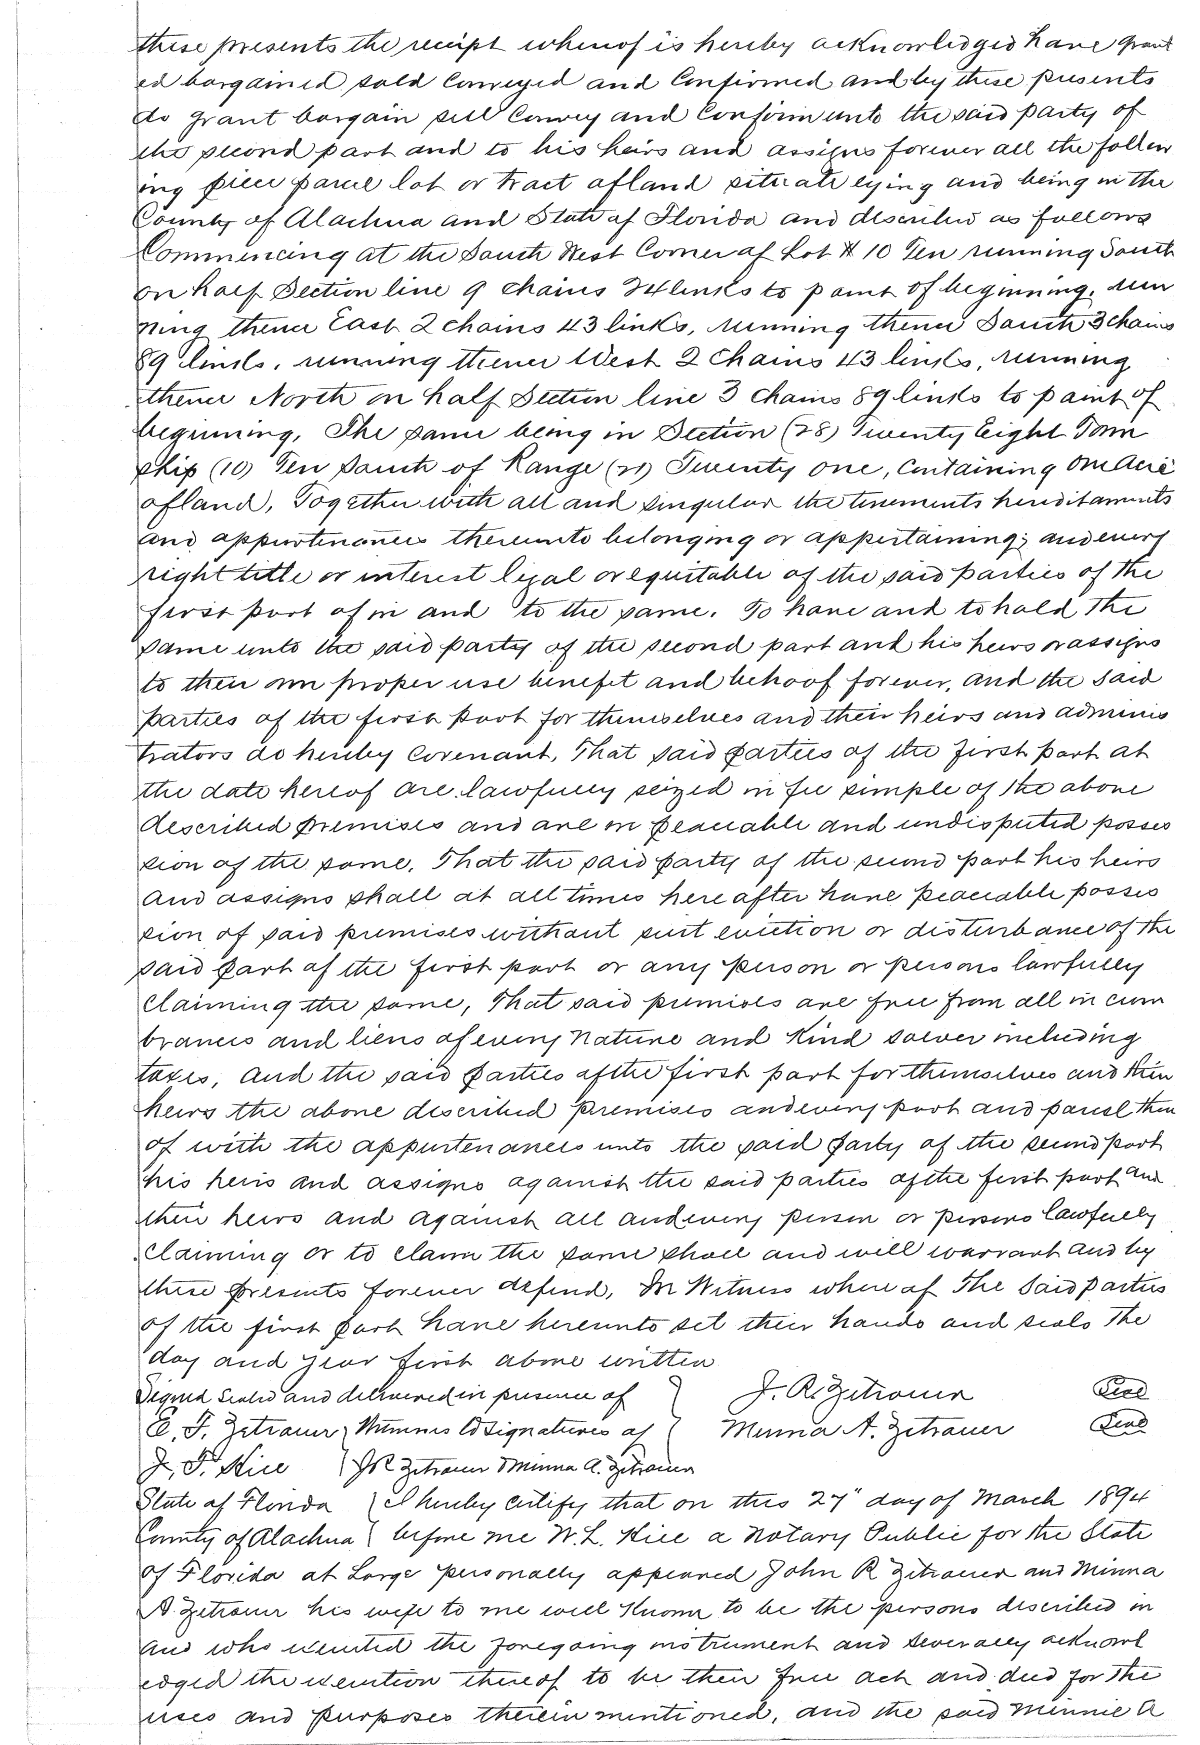 these presents the receipt whereof is hereby acknowledged have grant
ed bargained sold conveyed and confirmed and by these presents
do grant bargain sell convey and confirm unto the said party of
the second part and to his heirs and assigns forever all the follow
ing piece parcel lot or tract of land situate lying and being in the
County of Alachua and State of Florida and described as follows
Commencing at the South West Corner of Lot # 10 Ten running South
on half Section line 9 chains 24 links to point of beginning, run
ning thence East 2 chains 43 links, running thence South 3 chains
89 links, running thence West 2 Chains 43 links, running
thence North on half Section line 3 chains 89 links to point of
beginning, The same being in Section (28) Twenty Eight Town
ship (10) Ten South of Range (21) Twenty one, Containing One Acre
of land, Together with all and singular the tenements hereditaments
and appurtenances thereunto belonging or appertaining; and every
right title or interest legal or equitable of the said parties of the
first part of in and to the same. To have and to hold the
same unto the said party of the second part and his heirs or assigns
to their own proper use benefit and behoof forever, and the said
parties of the first part for themselves and their heirs and adminis
trators do hereby covenant, That said parties of the first part at
the date hereof are lawfully seized in fee simple of the above
described premises and are in peaceable and undisputed posses
sion of the same, That the said party of the second part his heirs
and assigns shall at all times here after have peaceable posses
sion of said premises without suit eviction or disturbance of the
said part of the first part or any person or persons lawfully
claiming the same, That said premises are free from all in cum
brances and liens of every nature and kind soever including
taxes, and the said parties of the first part for themselves and their
heirs the above described premises and every part and parcel there
of with the appurtenances unto the said party of the second part
his heirs and assigns against the said parties of the first part and
their heirs and against all and every person or persons lawfully
claiming or to claim the same shall and will warrant and by
these presents forever defend, In Witness where of The Said parties
of the first part have hereunto set their hands and seals the
day and year first above written
Signed Sealed and delivered in presence of } J. R. Zetrouer Seal
E. F. Zetrouer } Witnesses to Signatures of { Minna A. Zetrouer Seal
J. F. Hice } J R Zetrouer & Minna A. Zetrouer
State of Florida } I hereby certify that on this 27" day of March 1894
County of Alachua } before me W. L. Hice a Notary Public for the State
of Florida at Large personally appeared John R Zetrouer and Minna
A. Zetrouer his wife to me well known to be the persons described in
and who executed the foregoing instrument and severally acknowl
edged the execution thereof to be their free act and deed for the
uses and purposes therein mentioned, and the said Minnie A